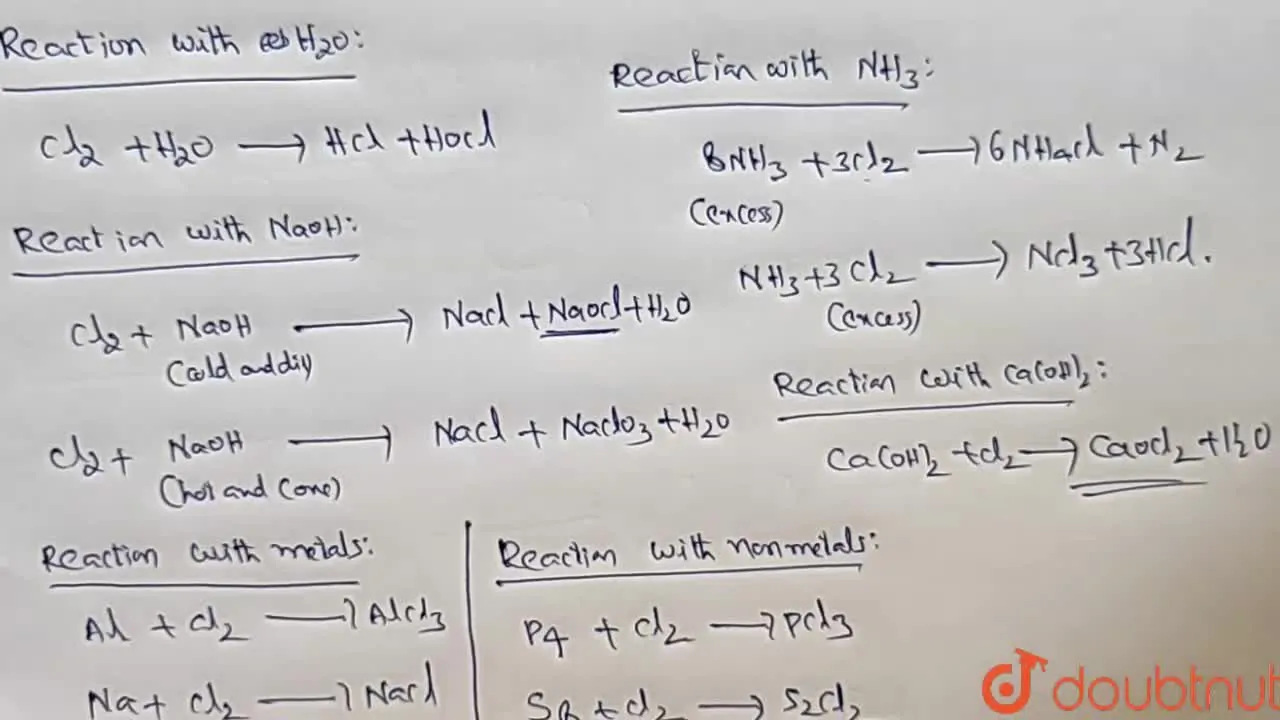 Reaction with H2O:
Cl2 + H2O → HCl + HOCl
Reaction with NaOH:
Cl2 + NaOH → NaCl + NaOCl + H2O
(cold and dil)
Cl2 + NaOH → NaCl + NaClO3 + H2O
(hot and conc)
Reaction with NH3:
8NH3 + 3Cl2 → 6NH4Cl + N2
(excess)
NH3 + 3Cl2 → NCl3 + 3HCl.
(excess)
Reaction with Ca(OH)2:
Ca(OH)2 + Cl2 → CaOCl2 + H2O
Reaction with metals:
Al + Cl2 → AlCl3
Na + Cl2 → NaCl
Reaction with nonmetals:
P4 + Cl2 → PCl3
S8 + Cl2 → S2Cl2
doubtnut